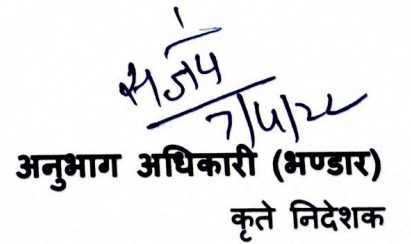 7/4/22
अनुभाग अधिकारी (भण्डार)
कृते निदेशक